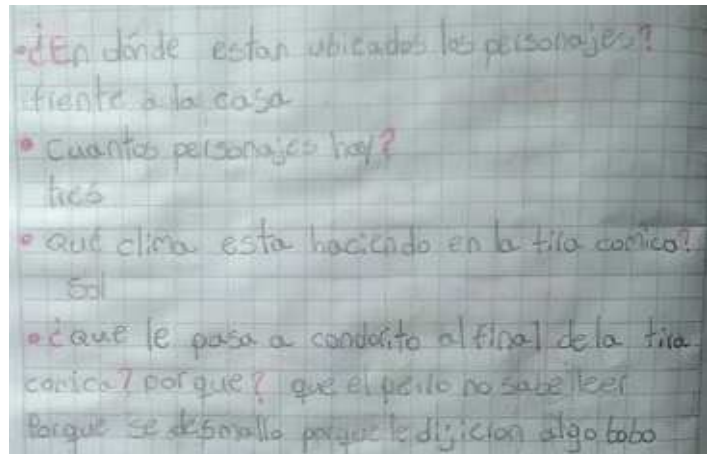 • ¿En dónde estan ubicados los personajes?
frente a la casa
• Cuantos personajes hay?
tres
• Qué clima esta haciendo en la tira comica?
Sol
• ¿Que le pasa a condorito al final de la tira
comica? por que? que el perro no sabe leer
Porque se desmallo porque le dijicion algo bobo